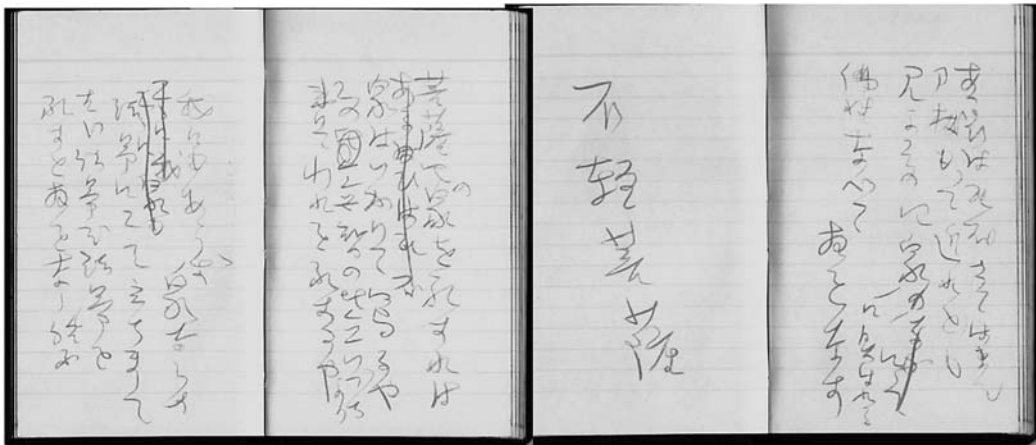 あるひは瓦石さてはまた
刀杖もって追れども
見よその四衆に
具はれる
佛性なべて
拝をなす
不軽菩薩
菩薩四の衆を礼すれば
衆はいかりて罵るや
この無智の比丘いづち
より
来りてわれを礼するや
我にもあらず衆ならず
法界にこそ立ちまして
たゞ法界ぞ法界を
礼すと拝をなし給ふ